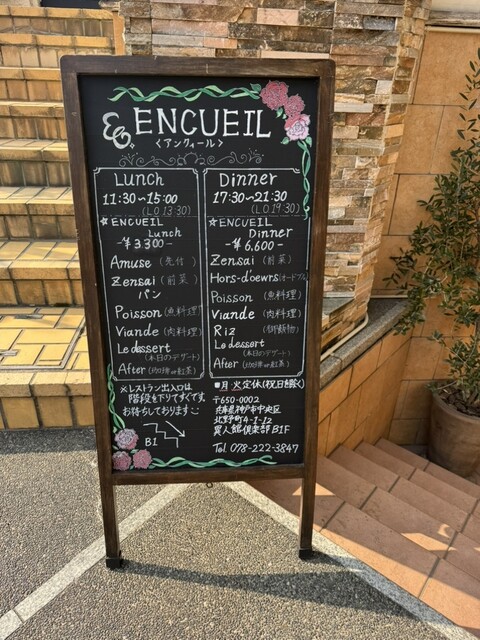 ENCUEIL
<アンクィール>
Lunch
11:30~15:00
(L.O 13:30)
★ENCUEIL
Lunch
-¥3.300-
Amuse (先付)
Zensai (前菜)
パン
Poisson (魚料理)
Viande (肉料理)
Le dessert
(本日のデザート)
After (コーヒーor紅茶)
Dinner
17:30~21:30
(L.O 19:30)
★ENCUEIL
Dinner
-¥6.600-
Zensai (前菜)
Hors-d'oewrs (オードブル)
Poisson (魚料理)
Viande (肉料理)
Riz (御飯物)
Le dessert
(本日のデザート)
After (コーヒーor紅茶)
※レストラン出入口は
階段を下りてすぐです。
お待ちしております
B1
■月・火定休(祝日除く)
〒650-0002
兵庫県神戸市中央区
北野町4-1-12
異人館倶楽部B1F
Tel. 078-222-3847